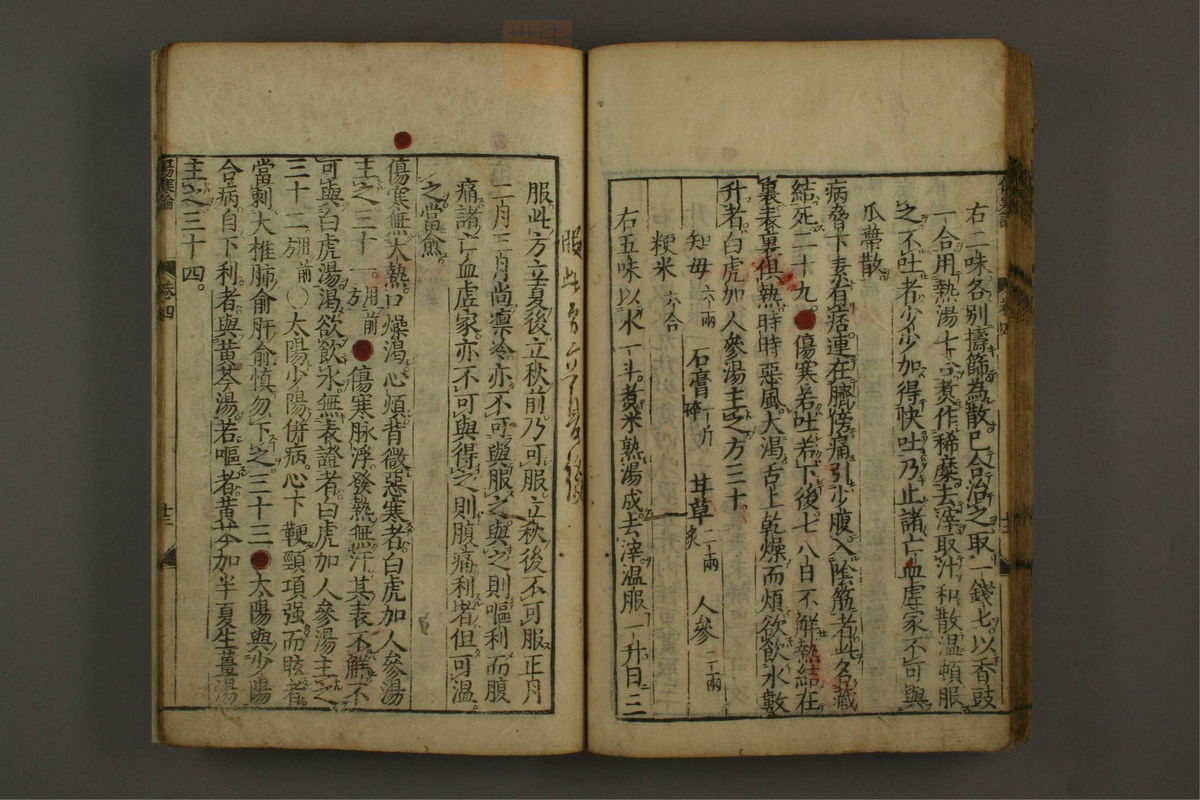 右二味各別擣篩為散已合治之取一錢匕以香豉
一合用熱湯七合煮作稀糜去滓取汁和散溫頓服
之不吐者少少加得快吐乃止諸亡血虛家不可與
瓜蔕散
病脅下素有痞連在臍傍痛引少腹入陰筋者此名藏
結死二十九。傷寒若吐若下後七八日不解熱結在
裏表裏俱熱時時惡風大渴舌上乾燥而煩欲飲水數
升者白虎加人參湯主之方三十。
知母六兩 石膏一斤碎 甘草二兩炙 人參二兩
粳米六合
右五味以水一斗煮米熟湯成去滓溫服一升日三
服此方立夏後
服此方立夏後立秋前乃可服立秋後不可服正月
二月三月尚凛冷亦不可與服之與之則嘔利而腹
痛諸亡血虛家亦不可與得之則腹痛利者但可溫
之當愈。
傷寒無大熱口燥渴心煩背微惡寒者白虎加人參湯
主之三十一。用前方 傷寒脉浮發熱無汗其表不解不
可與白虎湯渴欲飲水無表證者白虎加人參湯主之
三十二用前方〇太陽少陽併病心下鞕頸項强而眩者
當刺大椎肺俞肝俞慎勿下之三十三 太陽與少陽
合病自下利者與黃芩湯若嘔者黃芩加半夏生薑湯
主之三十四。
傷寒論 卷四 十三